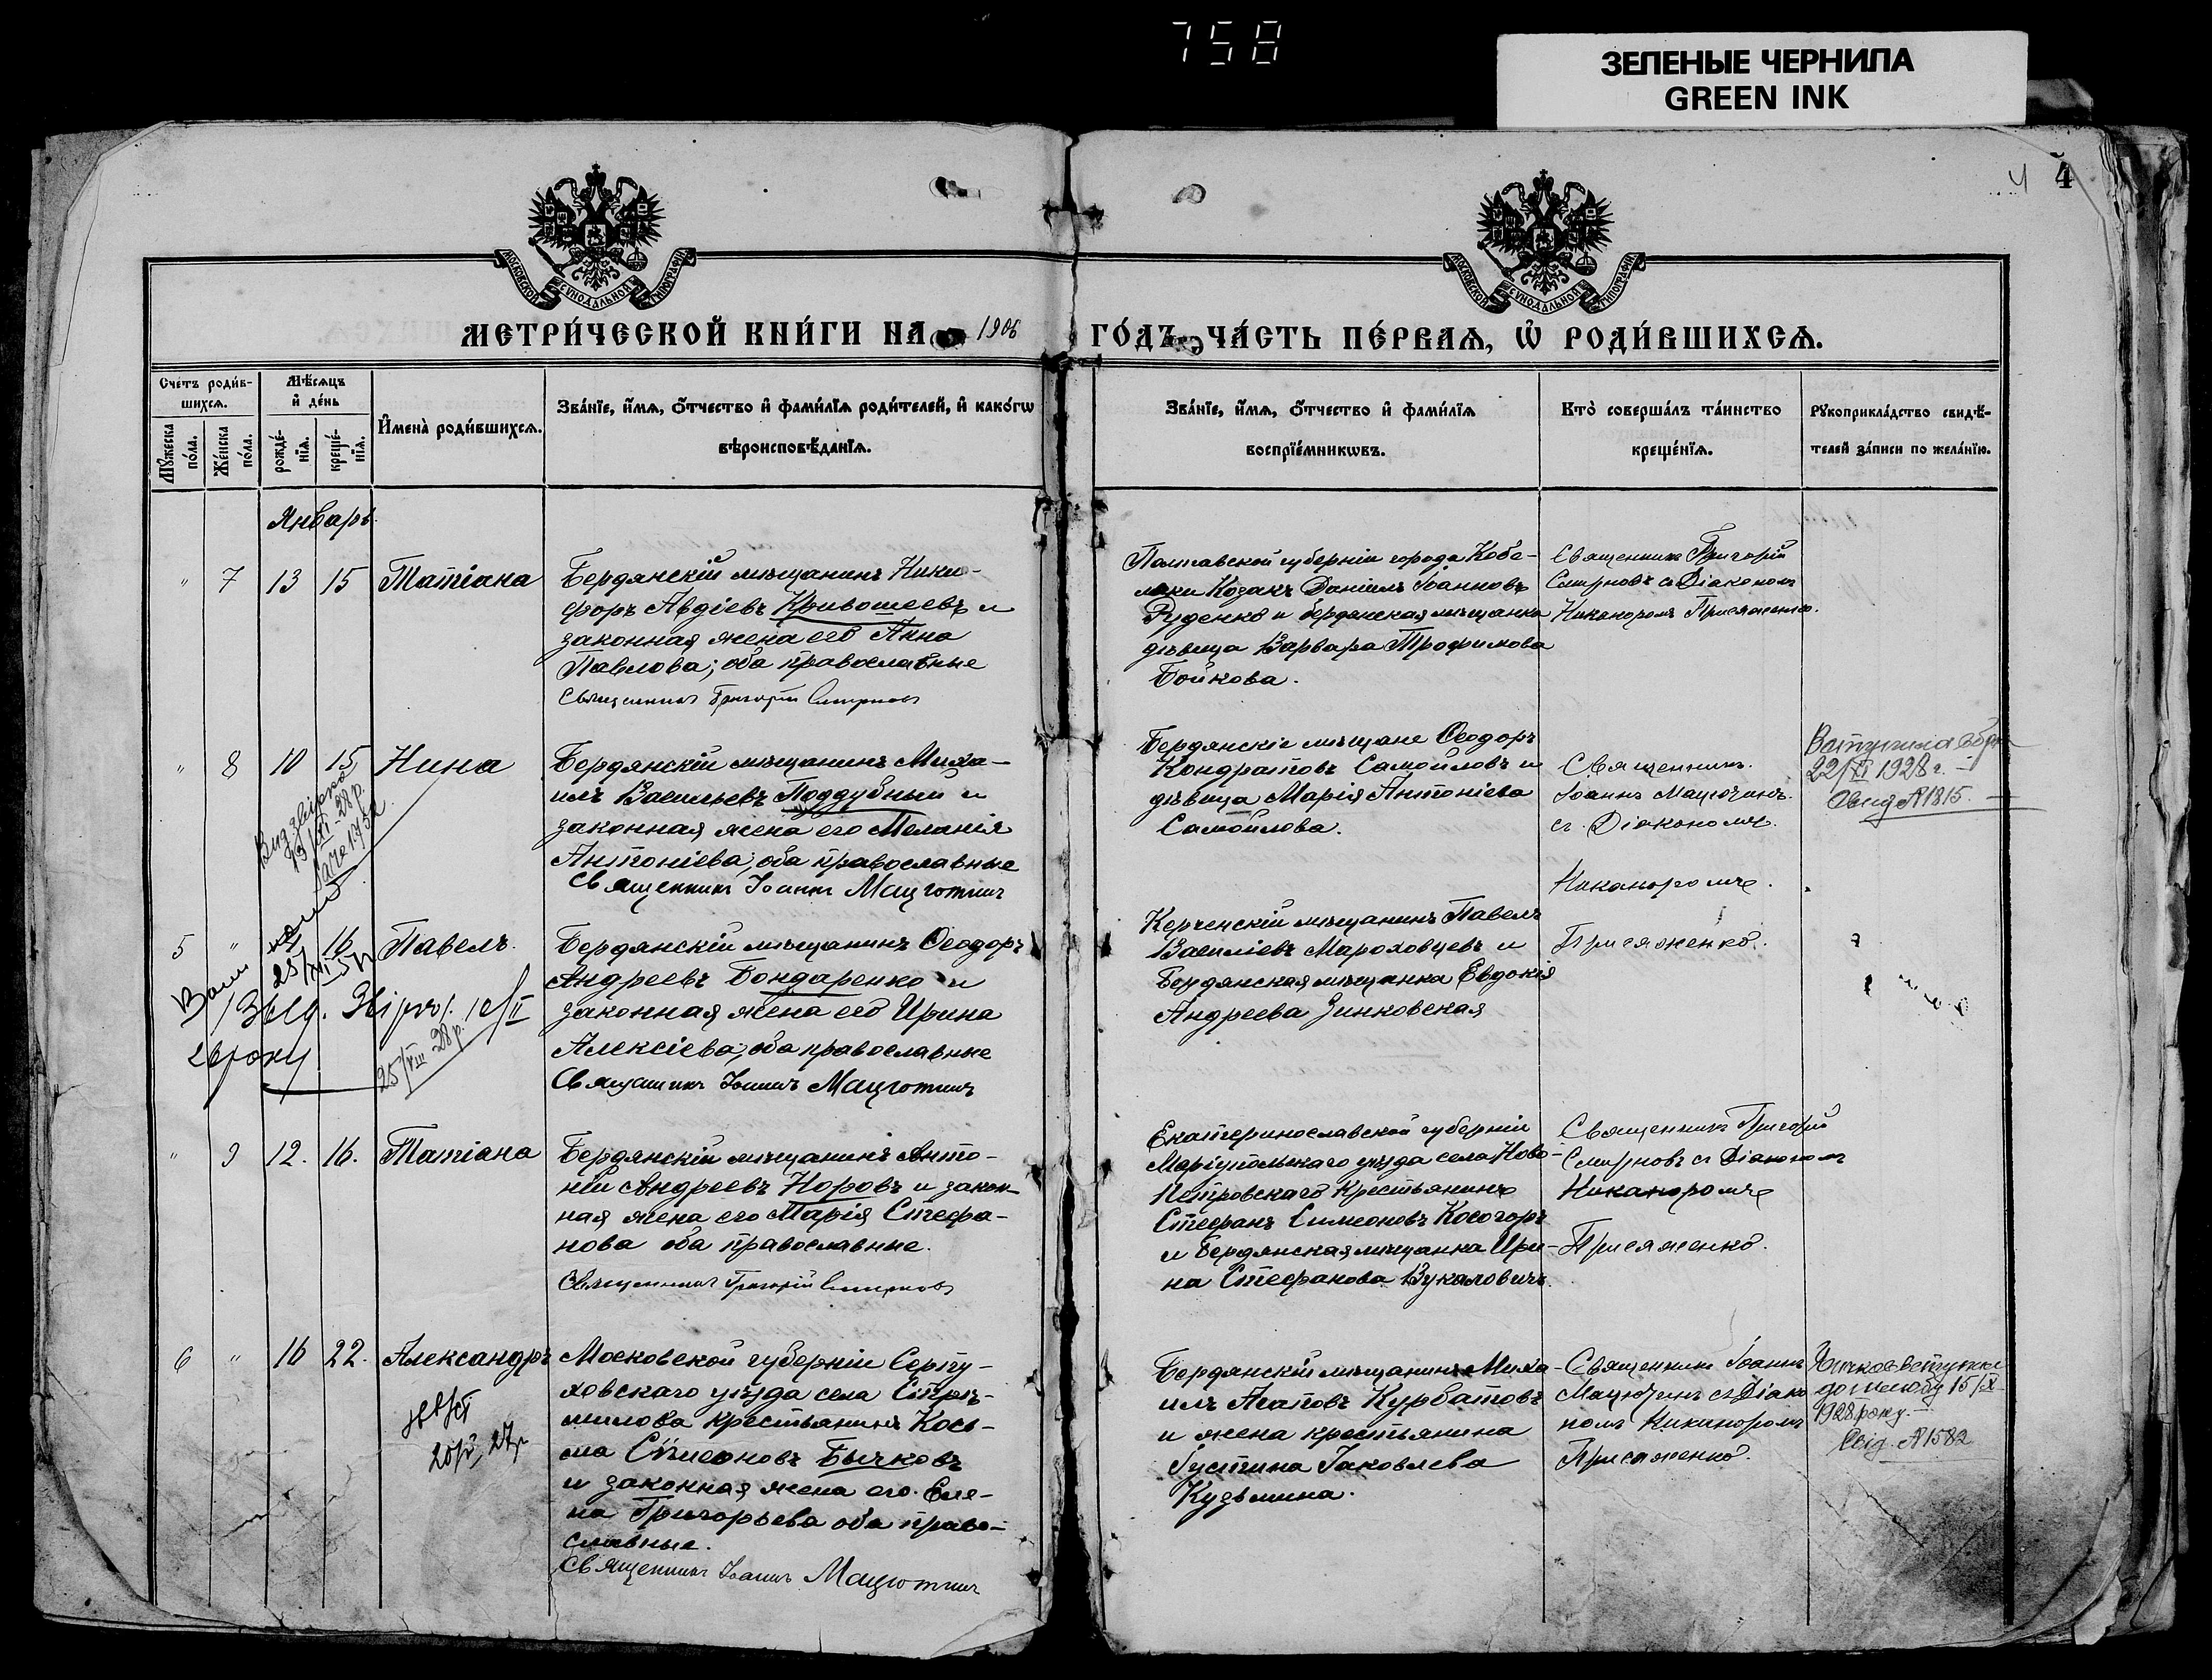 758
ЗЕЛЕНЫЕ ЧЕРНИЛА
GREEN INK
4 4
МОСКОВСКОЙ СѴНОДАЛЬНОЙ ТИПОГРАФІИ
МОСКОВСКОЙ СѴНОДАЛЬНОЙ ТИПОГРАФІИ
МЕТРИ́ЧЕСКОЙ КНИ́ГИ НА 1906 ГО́ДЪ, ЧА́СТЬ ПЕ́РВАѦ, Ѽ РОДИ́ВШИХСѦ.
Сче́тъ роди́в-
шихсѧ.
Мꙋ́жеска по́ла.
Же́нска по́ла.
Мѣ́сѧцъ
и҆ де́нь
рожде́-
нїѧ.
креще́-
нїѧ.
И҆мена̀ роди́вшихсѧ.
Зва́нїе, и҆́мѧ, ѻ҆́тчество и҆ фами́лїѧ роди́телей, и҆ како́гѡ
вѣроисповѣ́данїѧ.
Зва́нїе, и҆́мѧ, ѻ҆́тчество и҆ фами́лїѧ
воспрїе́мникѡвъ.
Кто̀ соверша́лъ та́инство
креще́нїѧ.
Рꙋкоприкла́дство свидѣ́-
телей за́писи по жела́нїю.
Январь.
" 7 13 15 Татіана
Бердянскій мѣщанинъ Ники-
форъ Авдіевъ Кривошеевъ и
законная жена его Анна
Павлова; оба православные
Священникъ Григорій Смирновъ
Полтавской губерніи города Кобе-
ляки Козакъ Даніилъ Іоанновъ
Руденко и бердянская мѣщанка
дѣвица Варвара Трофимова
Бойкова.
Священникъ Григорій
Смирновъ съ Діакономъ
Никаноромъ Присяженко.
" 8 10 15 Нина
Бердянскій мѣщанинъ Миха-
илъ Васильевъ Поддубный и
законная жена его Меланія
Антоніева; оба православные
Священникъ Іоаннъ Мацютинъ
Бердянскіе мѣщане Ѳеодоръ
Кондратовъ Самойловъ и
дѣвица Марія Антоніева
Самойлова.
Священникъ
Іоаннъ Мацютинъ
съ Діакономъ
Никаноромъ
Присяженко.
22/XI 1928 г.
Свид № 1815.
5 " 16 Павелъ.
25/VIII 28 р.
Бердянскій мѣщанинъ Ѳеодоръ
Андреевъ Бондаренко и
законная жена его Ирина
Алексіева; оба православные
Священникъ Іоаннъ Мацютинъ
Керченскій мѣщанинъ Павелъ
Василіевъ Мароховцевъ и
Бердянская мѣщанка Евдокія
Андреева Зинковская
" 9 12. 16. Татіана
Бердянскій мѣщанинъ Анто-
ній Андреевъ Норовъ и закон-
ная жена его Марія Стефа-
нова оба православные.
Священникъ Григорій Смирновъ
Екатеринославской губерніи
Маріупольскаго уѣзда села Ново-
Петровскаго крестьянинъ
Стефанъ Симеоновъ Косогоръ
и бердянская мѣщанка Ири-
на Стефанова Вукаловичъ.
Священникъ Григорій
Смирновъ съ Діакономъ
Никаноромъ
Присяженко.
6 " 16 22. Александръ
Московской губерніи Серпу-
ховскаго уѣзда села Стрѣ-
милова крестьянинъ Кось-
ма Симеоновъ Бычковъ
и законная жена его Еле-
на Григорьева оба право-
славные.
Священникъ Іоаннъ Мацютинъ
Бердянскій мѣщанинъ Миха-
илъ Агаповъ Курбатовъ
и жена крестьянина
Іустина Іаковлева
Кузьмина.
Священникъ Іоаннъ
Мацютинъ съ Діако
номъ Никаноромъ
Присяженко.
15/X
1928 року.
Свід. № 1582